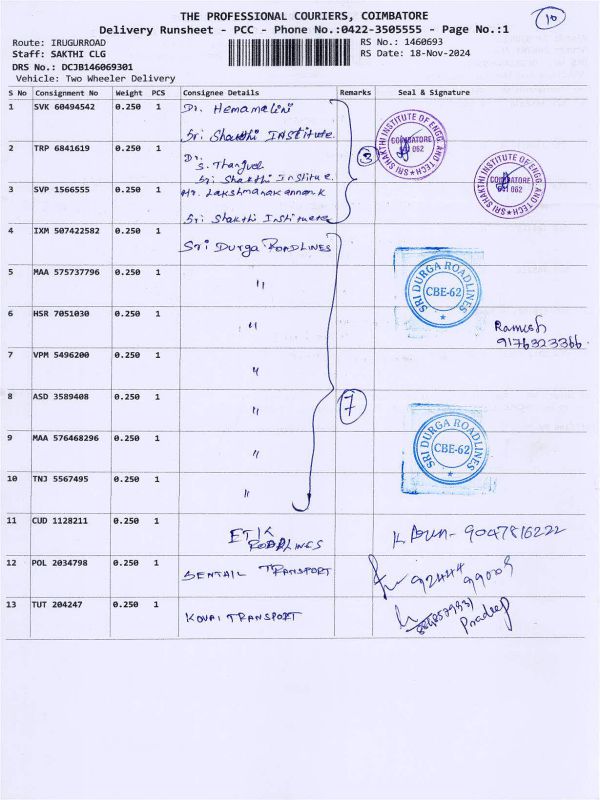 THE PROFESSIONAL COURIERS, COIMBATORE
10
Delivery Runsheet - PCC - Phone No.:0422-3505555 - Page No.:1
Route: IRUGURROAD
RS No.: 1460693
Staff: SAKTHI CLG
RS Date: 18-Nov-2024
DRS No.: DCJB146069301
Vehicle: Two Wheeler Delivery
S No Consignment No Weight PCS Consignee Details Remarks Seal & Signature
1 SVK 60494542 0.250 1 Dr. Hemamalini
Sri Shakthi Institute
2 TRP 6841619 0.250 1 Dr.
S. Thangvel
Sri Shakthi Institute
3
SRI SHAKTHI INSTITUTE OF ENGG. AND TECH
COIMBATORE
641 062
3 SVP 1566555 0.250 1 Mr. Lakshmanakannan
Sri Shakthi Institute
SRI SHAKTHI INSTITUTE OF ENGG. AND TECH
COIMBATORE
641 062
4 IXM 507422582 0.250 1 Sri Durga ROADLINES
5 MAA 575737796 0.250 1 "
SRI DURGA ROADLINES
CBE-62
6 HSR 7051030 0.250 1 "
Ramesh
9176323366
7 VPM 5496200 0.250 1 "
8 ASD 3589408 0.250 1 "
7
9 MAA 576468296 0.250 1 "
SRI DURGA ROADLINES
CBE-62
10 TNJ 5567495 0.250 1 "
11 CUD 1128211 0.250 1 ETK
ROADLINES
9047816222
12 POL 2034798 0.250 1 SENTAIL TRANSPORT
92444
99009
13 TUT 204247 0.250 1 KOVAI TRANSPORT
Pradeep